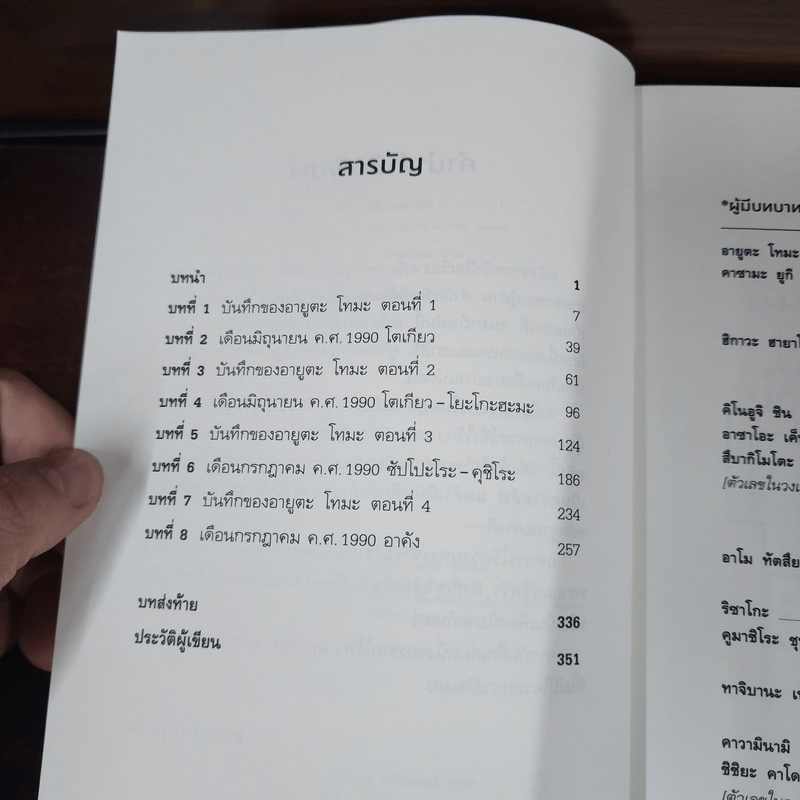 สารบัญ
บทนำ 1
บทที่ 1 บันทึกของอายูตะ โทมะ ตอนที่ 1 7
บทที่ 2 เดือนมิถุนายน ค.ศ. 1990 โตเกียว 39
บทที่ 3 บันทึกของอายูตะ โทมะ ตอนที่ 2 61
บทที่ 4 เดือนมิถุนายน ค.ศ. 1990 โตเกียว-โยะโกะฮะมะ 96
บทที่ 5 บันทึกของอายูตะ โทมะ ตอนที่ 3 124
บทที่ 6 เดือนกรกฎาคม ค.ศ. 1990 ซัปโปะโระ-คุชิโระ 186
บทที่ 7 บันทึกของอายูตะ โทมะ ตอนที่ 4 234
บทที่ 8 เดือนกรกฎาคม ค.ศ. 1990 อาคัง 257
บทส่งท้าย 336
ประวัติผู้เขียน 351
*ผู้มีบทบาท
อายูตะ โทมะ
คาซามะ ยูกิ
ฮิกาวะ ฮายาโ
คิโนอูจิ ชิน
อาซาโอะ เค็
สึบากิโมโตะ
[ตัวเลขในวงเ
อาโม ทัตสึย
ริซาโกะ
คูมาชิโระ ชุ
ทาจิบานะ เ
คาวามินามิ
ชิชิยะ คาโด
[ตัวเลขใน